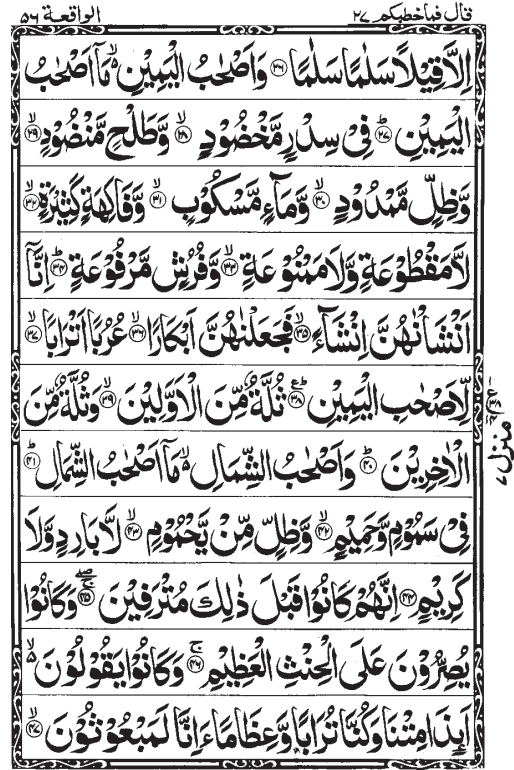 قال فماخطبكم ٢٧ الواقعة ٥٦
اِلَّا قِيۡلًا سَلٰمًا سَلٰمًا ﴿۲۶﴾ وَاَصۡحٰبُ الۡيَمِيۡنِ ۙ مَاۤ اَصۡحٰبُ
الۡيَمِيۡنِ ؕ﴿۲۷﴾ فِىۡ سِدۡرٍ مَّخۡضُوۡدٍ ۙ﴿۲۸﴾ وَّطَلۡحٍ مَّنۡضُوۡدٍ ۙ﴿۲۹﴾
وَّظِلٍّ مَّمۡدُوۡدٍ ۙ﴿۳۰﴾ وَّمَآءٍ مَّسۡكُوۡبٍ ۙ﴿۳۱﴾ وَّفَاكِهَةٍ كَثِيۡرَةٍ ۙ﴿۳۲﴾
لَّا مَقۡطُوۡعَةٍ وَّلَا مَمۡنُوۡعَةٍ ۙ﴿۳۳﴾ وَّفُرُشٍ مَّرۡفُوۡعَةٍ ؕ﴿۳۴﴾ اِنَّاۤ
اَنۡشَاۡنٰهُنَّ اِنۡشَآءً ۙ﴿۳۵﴾ فَجَعَلۡنٰهُنَّ اَبۡكَارًا ۙ﴿۳۶﴾ عُرُبًا اَتۡرَابًا ۙ﴿۳۷﴾
لِّاَصۡحٰبِ الۡيَمِيۡنِ ؕ﴿۳۸﴾ ثُلَّةٌ مِّنَ الۡاَوَّلِيۡنَ ۙ﴿۳۹﴾ وَثُلَّةٌ مِّنَ
الۡاٰخِرِيۡنَ ؕ﴿۴۰﴾ وَاَصۡحٰبُ الشِّمَالِ ۙ مَاۤ اَصۡحٰبُ الشِّمَالِ ؕ﴿۴۱﴾
فِىۡ سَمُوۡمٍ وَّحَمِيۡمٍ ۙ﴿۴۲﴾ وَّظِلٍّ مِّنۡ يَّحۡمُوۡمٍ ۙ﴿۴۳﴾ لَّا بَارِدٍ وَّلَا
كَرِيۡمٍ ﴿۴۴﴾ اِنَّهُمۡ كَانُوۡا قَبۡلَ ذٰلِكَ مُتۡرَفِيۡنَ ۚۖ﴿۴۵﴾ وَكَانُوۡا
يُصِرُّوۡنَ عَلَى الۡحِنۡثِ الۡعَظِيۡمِ ۚ﴿۴۶﴾ وَكَانُوۡا يَقُوۡلُوۡنَ ۙ۵
اَئِذَا مِتۡنَا وَكُنَّا تُرَابًا وَّعِظَامًا ءَاِنَّا لَمَبۡعُوۡثُوۡنَ ۙ﴿۴۷﴾
منزل ۷